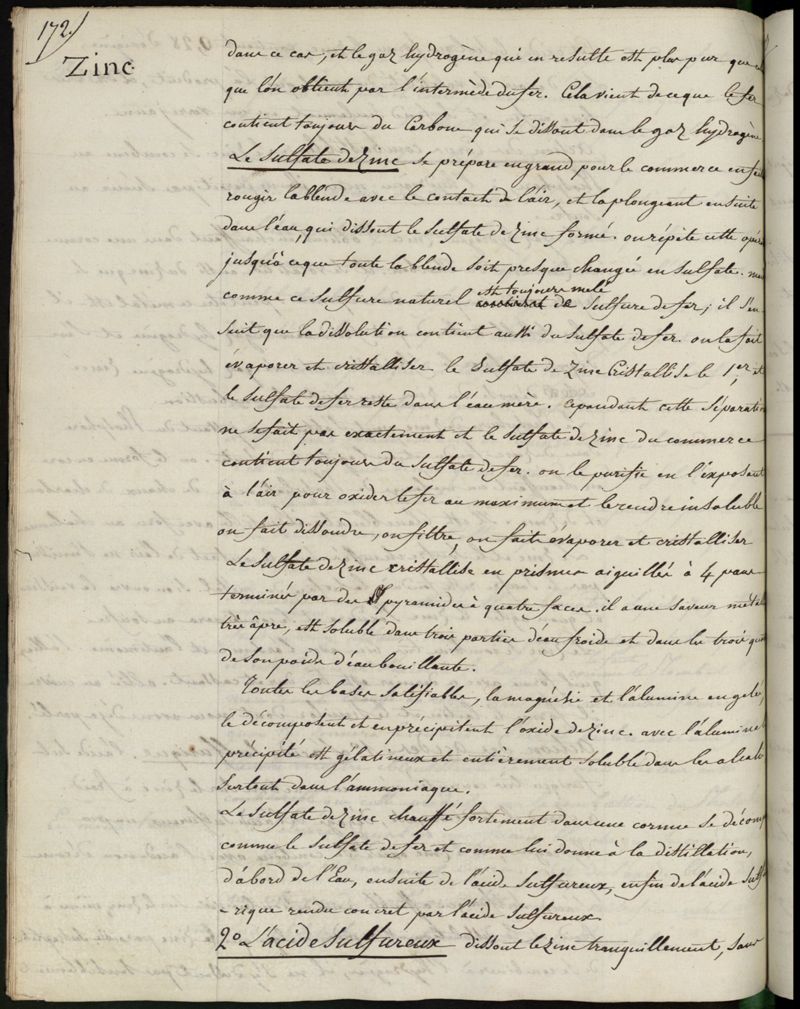 172.
Zinc
dans ce cas, et le gaz hydrogène qui en resulte est plus pur que
que l'on obtient par l'intermède du fer. Cela vient de ce que le fer
contient toujours du Carbone qui se dissout dans le gaz hydrogène
Le Sulfate de Zinc se prépare en grand pour le commerce en
rougir la blende avec le contact de l'air, et la plongeant ensuite
dans l'eau, qui dissout le sulfate de Zinc formé. on répéte cette opé
jusqu'à ce que toute la blende soit presque changée en sulfate.
est toujours melé
comme ce Sulfure naturel contient de Sulfure de fer, il s'en
suit que la dissolution contient aussi du sulfate de fer. on la fait
évaporer et cristalliser le Sulfate de Zinc Cristallise le 1er, et
le sulfate de fer reste dans l'eau mère. cependant cette séparation
ne se fait pas exactement et le sulfate de Zinc du commerce
contient toujours du sulfate de fer. on le purifie en l'exposant
à l'air pour oxider le fer au maximum et le rendre insoluble
on fait dissoudre, on filtre, on fait évaporer et cristalliser
Le Sulfate de Zinc cristallise en prismes aiguillés à 4 pans
terminés par des pyramides à quatre faces. il a une saveur méta
très âpre, est soluble dans trois parties d'eau froide et dans les trois
de son poids d'eau bouillante.
Toutes les bases salifiables, la magnésie et l'alumine en gelée,
le décomposent et en précipitent l'oxide de zinc. avec l'alumine
précipité est gélatineux et entièrement soluble dans les alcali
surtout dans l'ammoniaque.
Le Sulfate de Zinc chauffé fortement dans une cornue se décomp
comme le sulfate de fer et comme lui donne à la distillation,
d'abord de l'Eau, ensuite de l'acide sulfureux, enfin de l'acide sulfu
-rique rendu concret par l'acide sulfureux
2° L'acide Sulfureux dissout le zinc tranquillement, sans